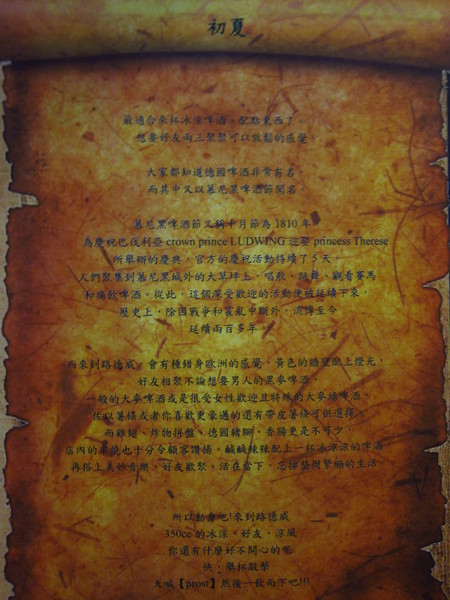 初夏
最適合來杯冰涼啤酒。配點東西了。
想要好友兩三聚聚可以放鬆的感覺。
大家都知道德國啤酒非常有名。
而其中又以慕尼黑啤酒節聞名。
慕尼黑啤酒節又稱十月節為 1810 年
為慶祝巴伐利亞 crown prince LUDWING 迎娶 princess Therese
所舉辦的慶典，官方的慶祝活動持續了 5 天。
人們聚集到慕尼黑城外的大草坪上，唱歌、跳舞、觀看賽馬
和痛飲啤酒。從此，這個深受歡迎的活動便被延續下來，
歷史上，除因戰爭和霍亂中斷外，流傳至今
延續兩百多年
而來到路德威，會有種錯身歐洲的感覺，黃色的牆壁點上燈光。
好友相聚不論想要男人的黑麥啤酒。
一般的大麥啤酒或是很受女性歡迎且特殊的大麥綠啤酒。
佐以薯條或者你喜歡更豪邁的還有帶皮薯條可供選擇。
而雞翅、炸物拼盤、德國豬腳、香腸更是不可少。
店內的串燒也十分令顧客讚揚。鹹鹹辣辣配上一杯冰涼涼的啤酒
再搭上美妙音樂，好友歡聚，活在當下，忘掉整周緊繃的生活。
所以動身吧!來到路德威
350cc 的冰涼。好友，涼風
你還有什麼好不開心的呢
快，舉杯敲擊
大喊【prost】然後一飲而下吧!!!